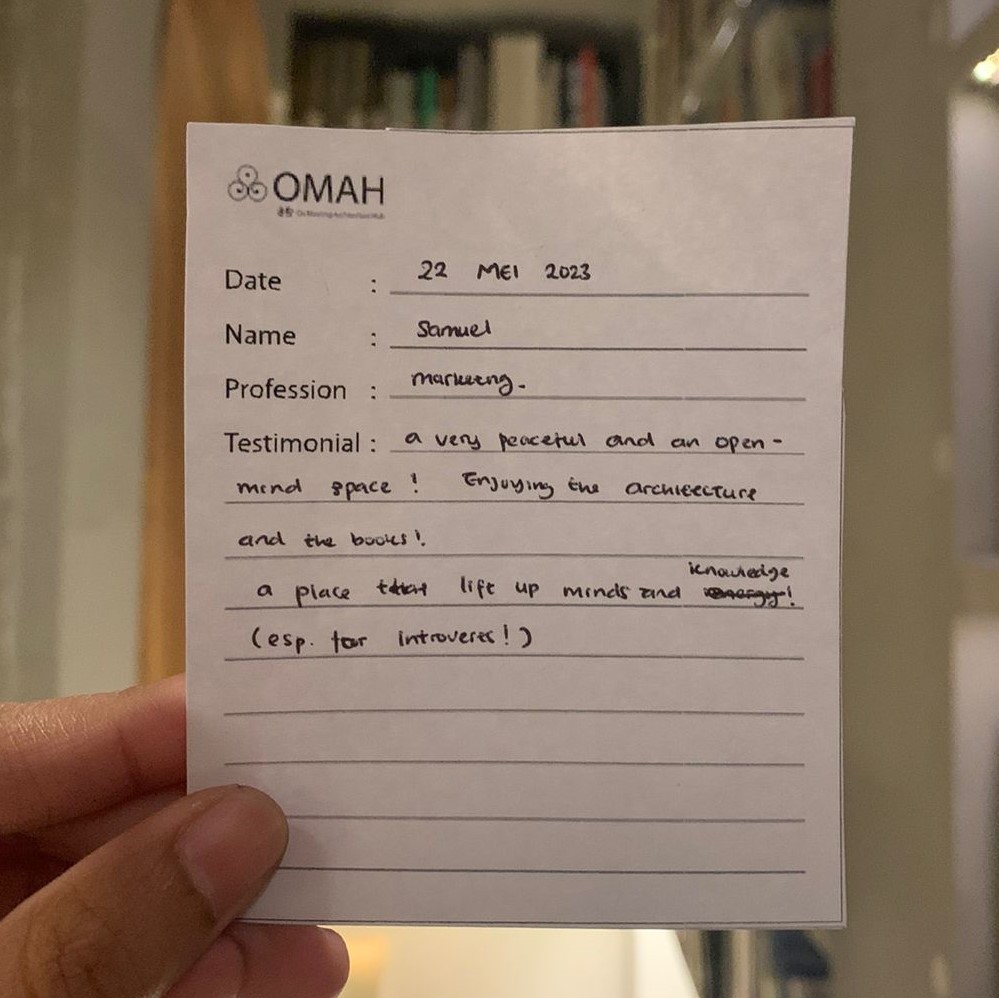 OMAH
Date : 22 MEI 2023
Name : Samuel
Profession : marketing.
Testimonial : a very peaceful and an open-
mind space! Enjoying the architecture
and the books!.
knowledge
a place that lift up minds and energy!
(esp. for introverts!)